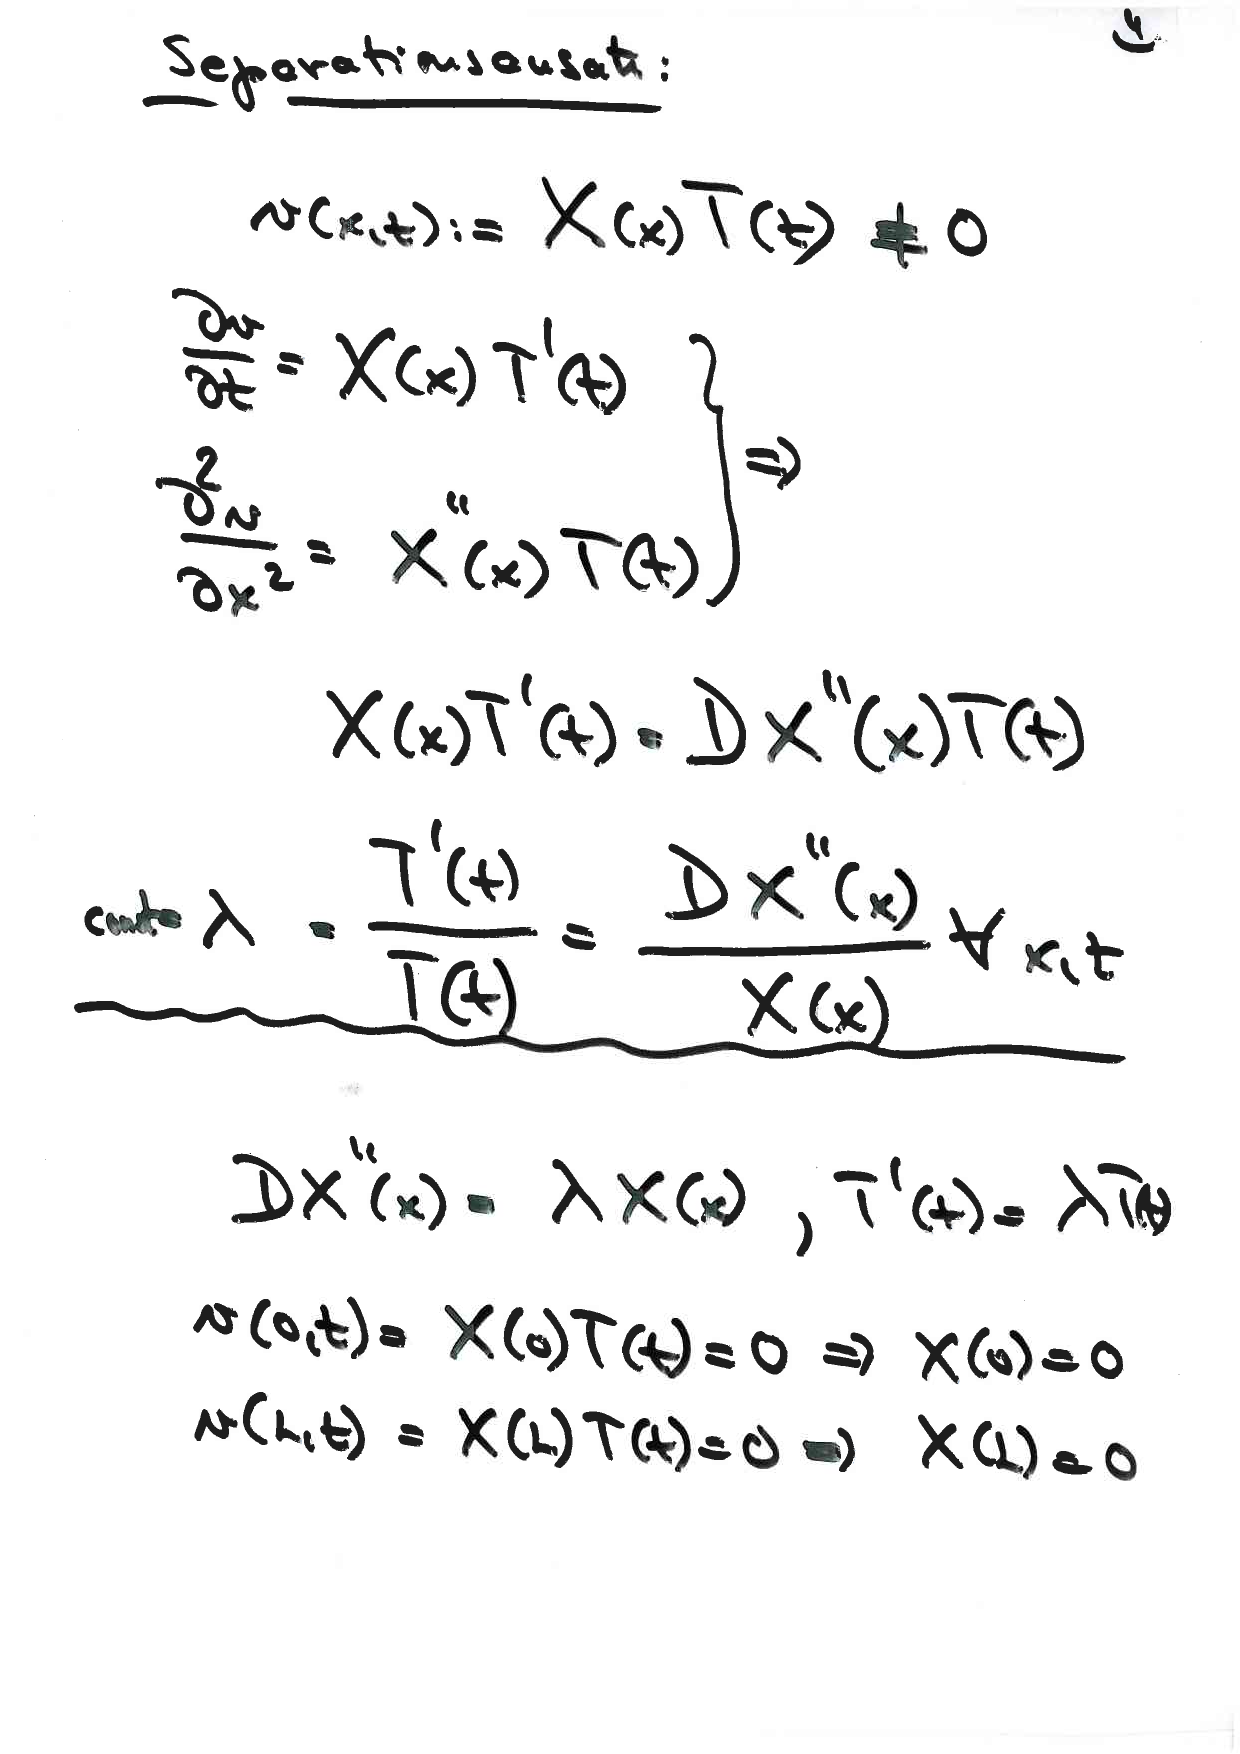 4
Separationsansatz:
v(x,t) := X(x)T(t) ≠ 0
∂v/∂t = X(x)T'(t)
∂²v/∂x² = X''(x)T(t) } ⇒
X(x)T'(t) = DX''(x)T(t)
const = λ = T'(t)/T(t) = DX''(x)/X(x) ∀ x,t
DX''(x) = λX(x) , T'(t) = λT(t)
v(0,t) = X(0)T(t) = 0 ⇒ X(0) = 0
v(L,t) = X(L)T(t) = 0 ⇒ X(L) = 0